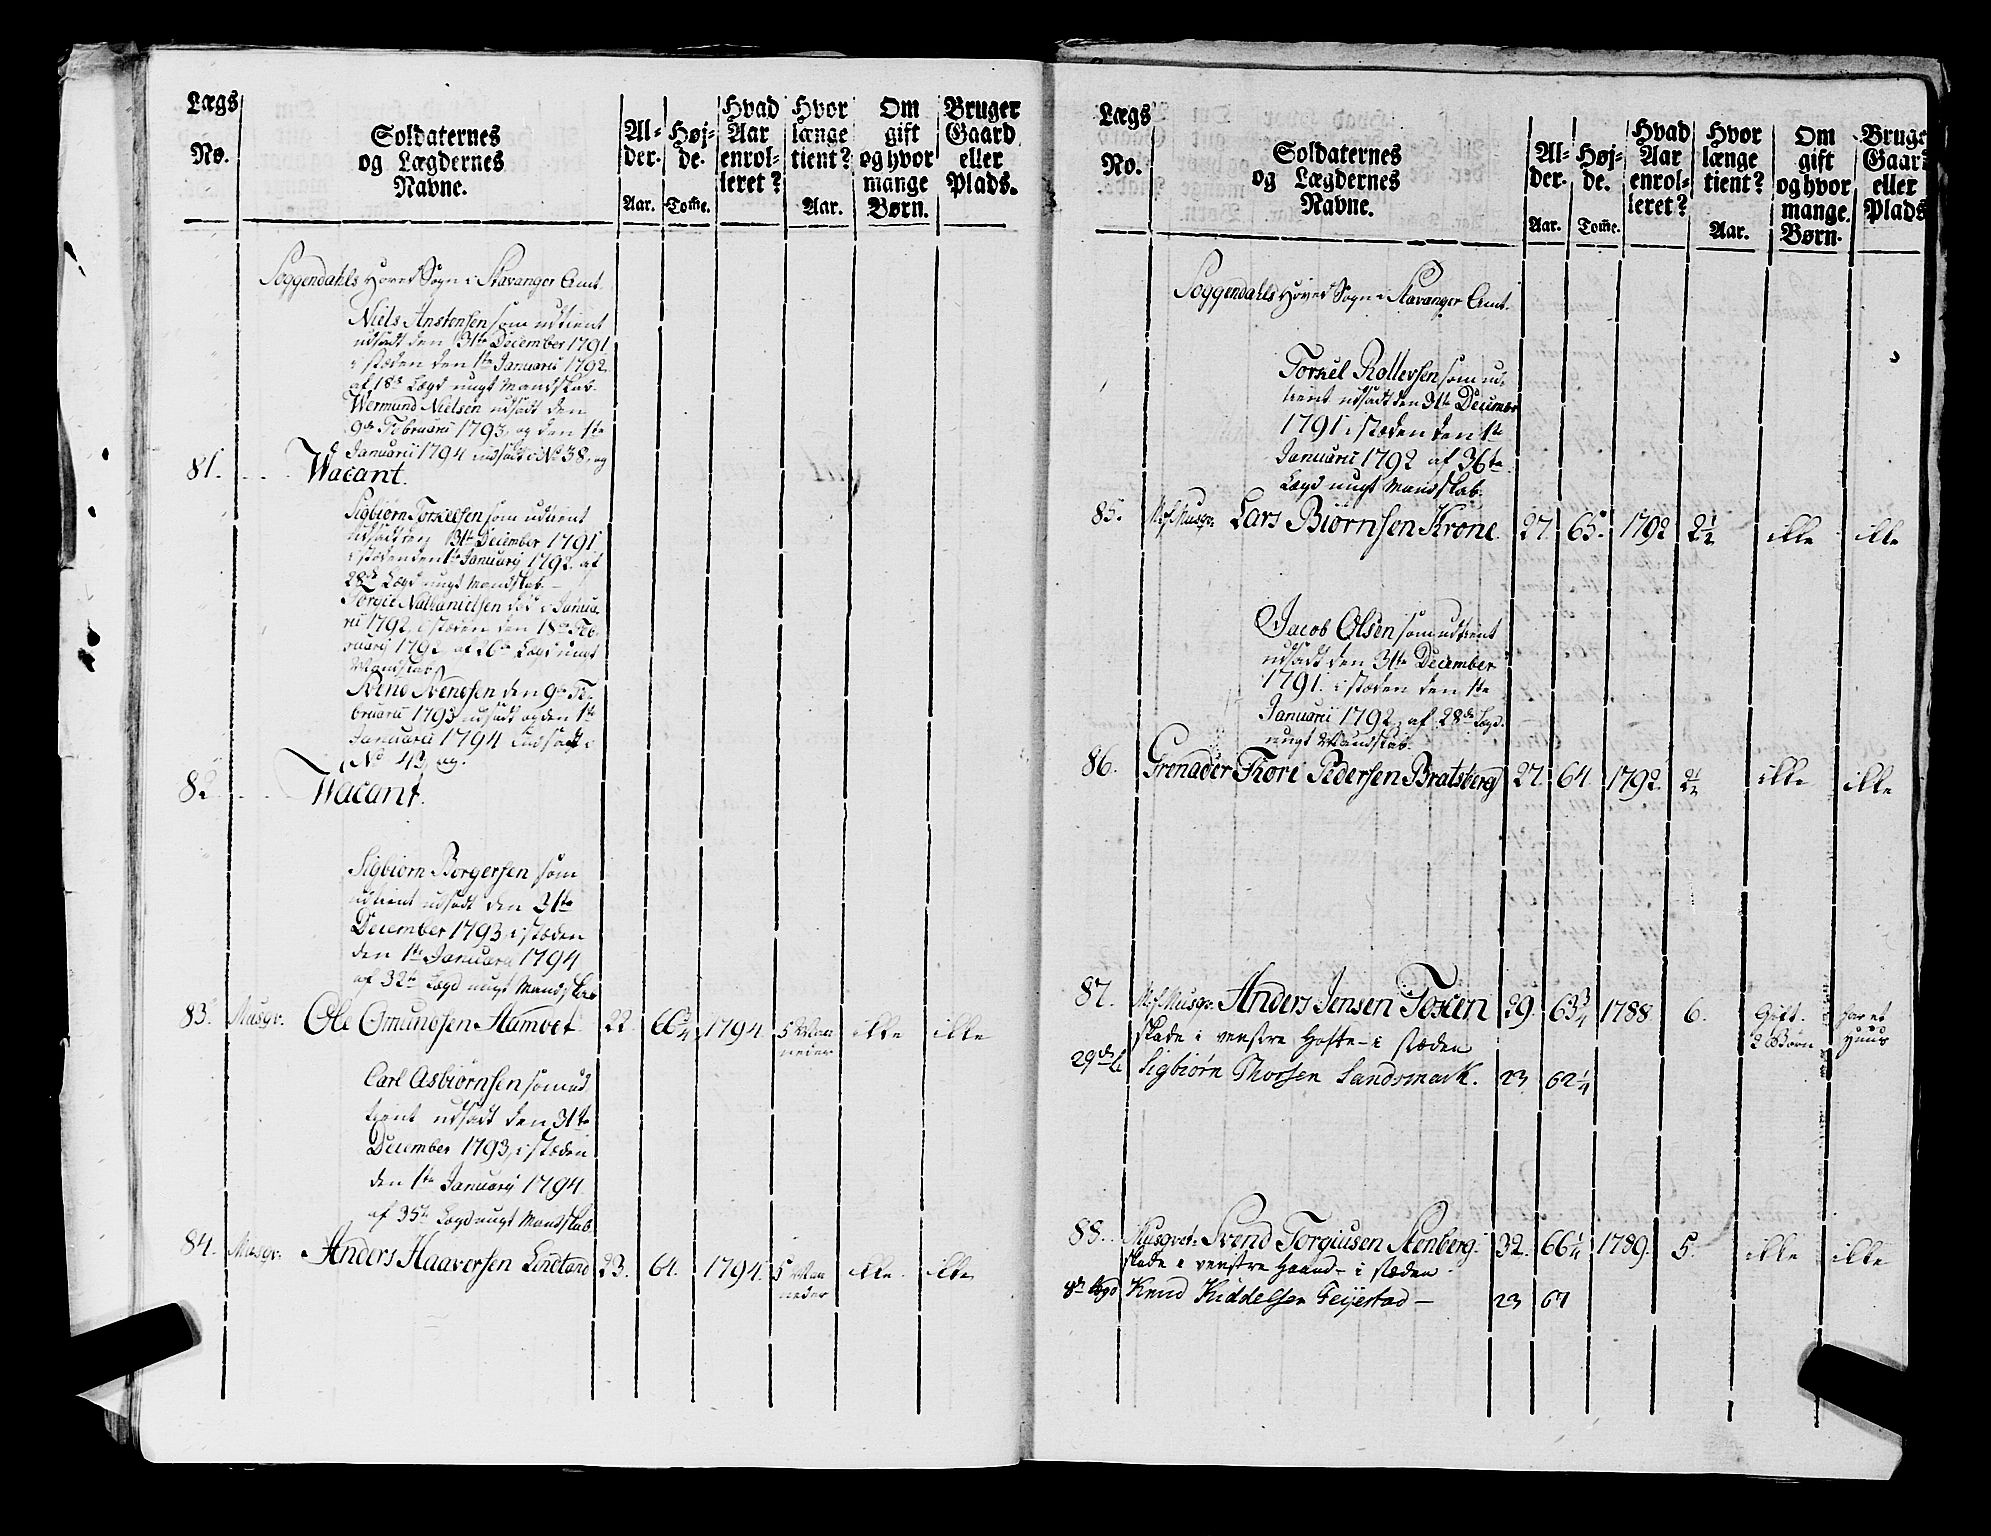 Lægs
No.
Soldaternes
og Lægdernes
Navne.
Al-
der.
Aar.
Høj-
de.
Tome.
Hvad
Aar
enrol-
leret?
Hvor
længe
tient?
Aar.
Om
gift
og hvor
mange
Børn.
Bruger
Gaard
eller
Plads.
Soggendahls Hoved Sogn i Stavanger Amt.
Niels Anstensen som udtient
udsadt den 31te December 1791
i stæden den 1te Januarii 1792
af 18de Lægd ungt Mandskab.
Wermund Nielsen udsadt den
9de Februarii 1793, og den 1te
Januarii 1794 indsadt i No 38, og
81. Wacant.
Sigbiørn Torkelsen som udtient
udsadt den 31te December 1791
i stæden den 1te Januarij 1792 af
28de Lægd ungt Mandskab.
Torgie Nathanielsen død i Janua-
rii 1792, i stæden den 18de Feb-
ruarij 1792 af 26de Lægd ungt
Mandskab
Svend Svendsen den 9de Fe-
bruarii 1793 udsadt og den 1te
Januarii 1794 indsadt i
No 43, og.
82. Wacant.
Sigbiørn Borgersen som
udtient udsadt den 31te
December 1793, i stæden
den 1te Januarii 1794
af 32te Lægd ungt Mandskab
83. Musqv. Ole Omundsen Hamvet 22. 66 3/4 1794. 5 Maa- ikke ikke
neder
Carl Asbiørnsen som ud
tient udsadt den 31te
December 1793, i stæden
den 1te Januarij 1794
af 35te Lægd ungt Mandskab
84. Musqv. Anders Haaversen Lindland 23. 64. 1794. 5 Maa ikke. ikke
neder
Lægs
No.
Soldaternes
og Lægdernes
Navne.
Al-
der.
Aar.
Høj-
de.
Tome.
Hvad
Aar
enrol-
leret?
Hvor
længe
tient?
Aar.
Om
gift
og hvor
mange
Børn.
Bruge
Gaard
eller
Plads
Soggendahls Hoved Sogn i Stavanger Amt.
Torkel Rollevsen som ud-
tient udsadt den 31te December
1791 i stæden den 1te
Januarii 1792 af 36te
Lægd ungt Mandskab.
85. Musqv: Lars Biørnsen Krone. 27. 65. 1792 2 1/2 ikke ikke
Jacob Olsen som udtient
udsadt den 31te December
1791. i stæden den 1te
Januarii 1792, af 28de Lægd.
ungt Mandskab.
86. Grenader Tore Pedersen Bratsberg 27. 64 1792. 2 1/2 ikke ikke
87. Musqv: Anders Jensen Toxen 29. 63 3/4 1788 6. Gift. har et
skade i venstre Hofte - i stæden 2 Børn Huus
29de L. Sigbiørn Thorsen Sandsmark. 23 62 1/4
88. Musqvet: Svend Torgiusen Stenberg. 32. 66 1/4 1789. 5. ikke ikke
skade i venstre Haand - i stæden
8de Lægd Knud Kiddelsen Feyestad - 23 67